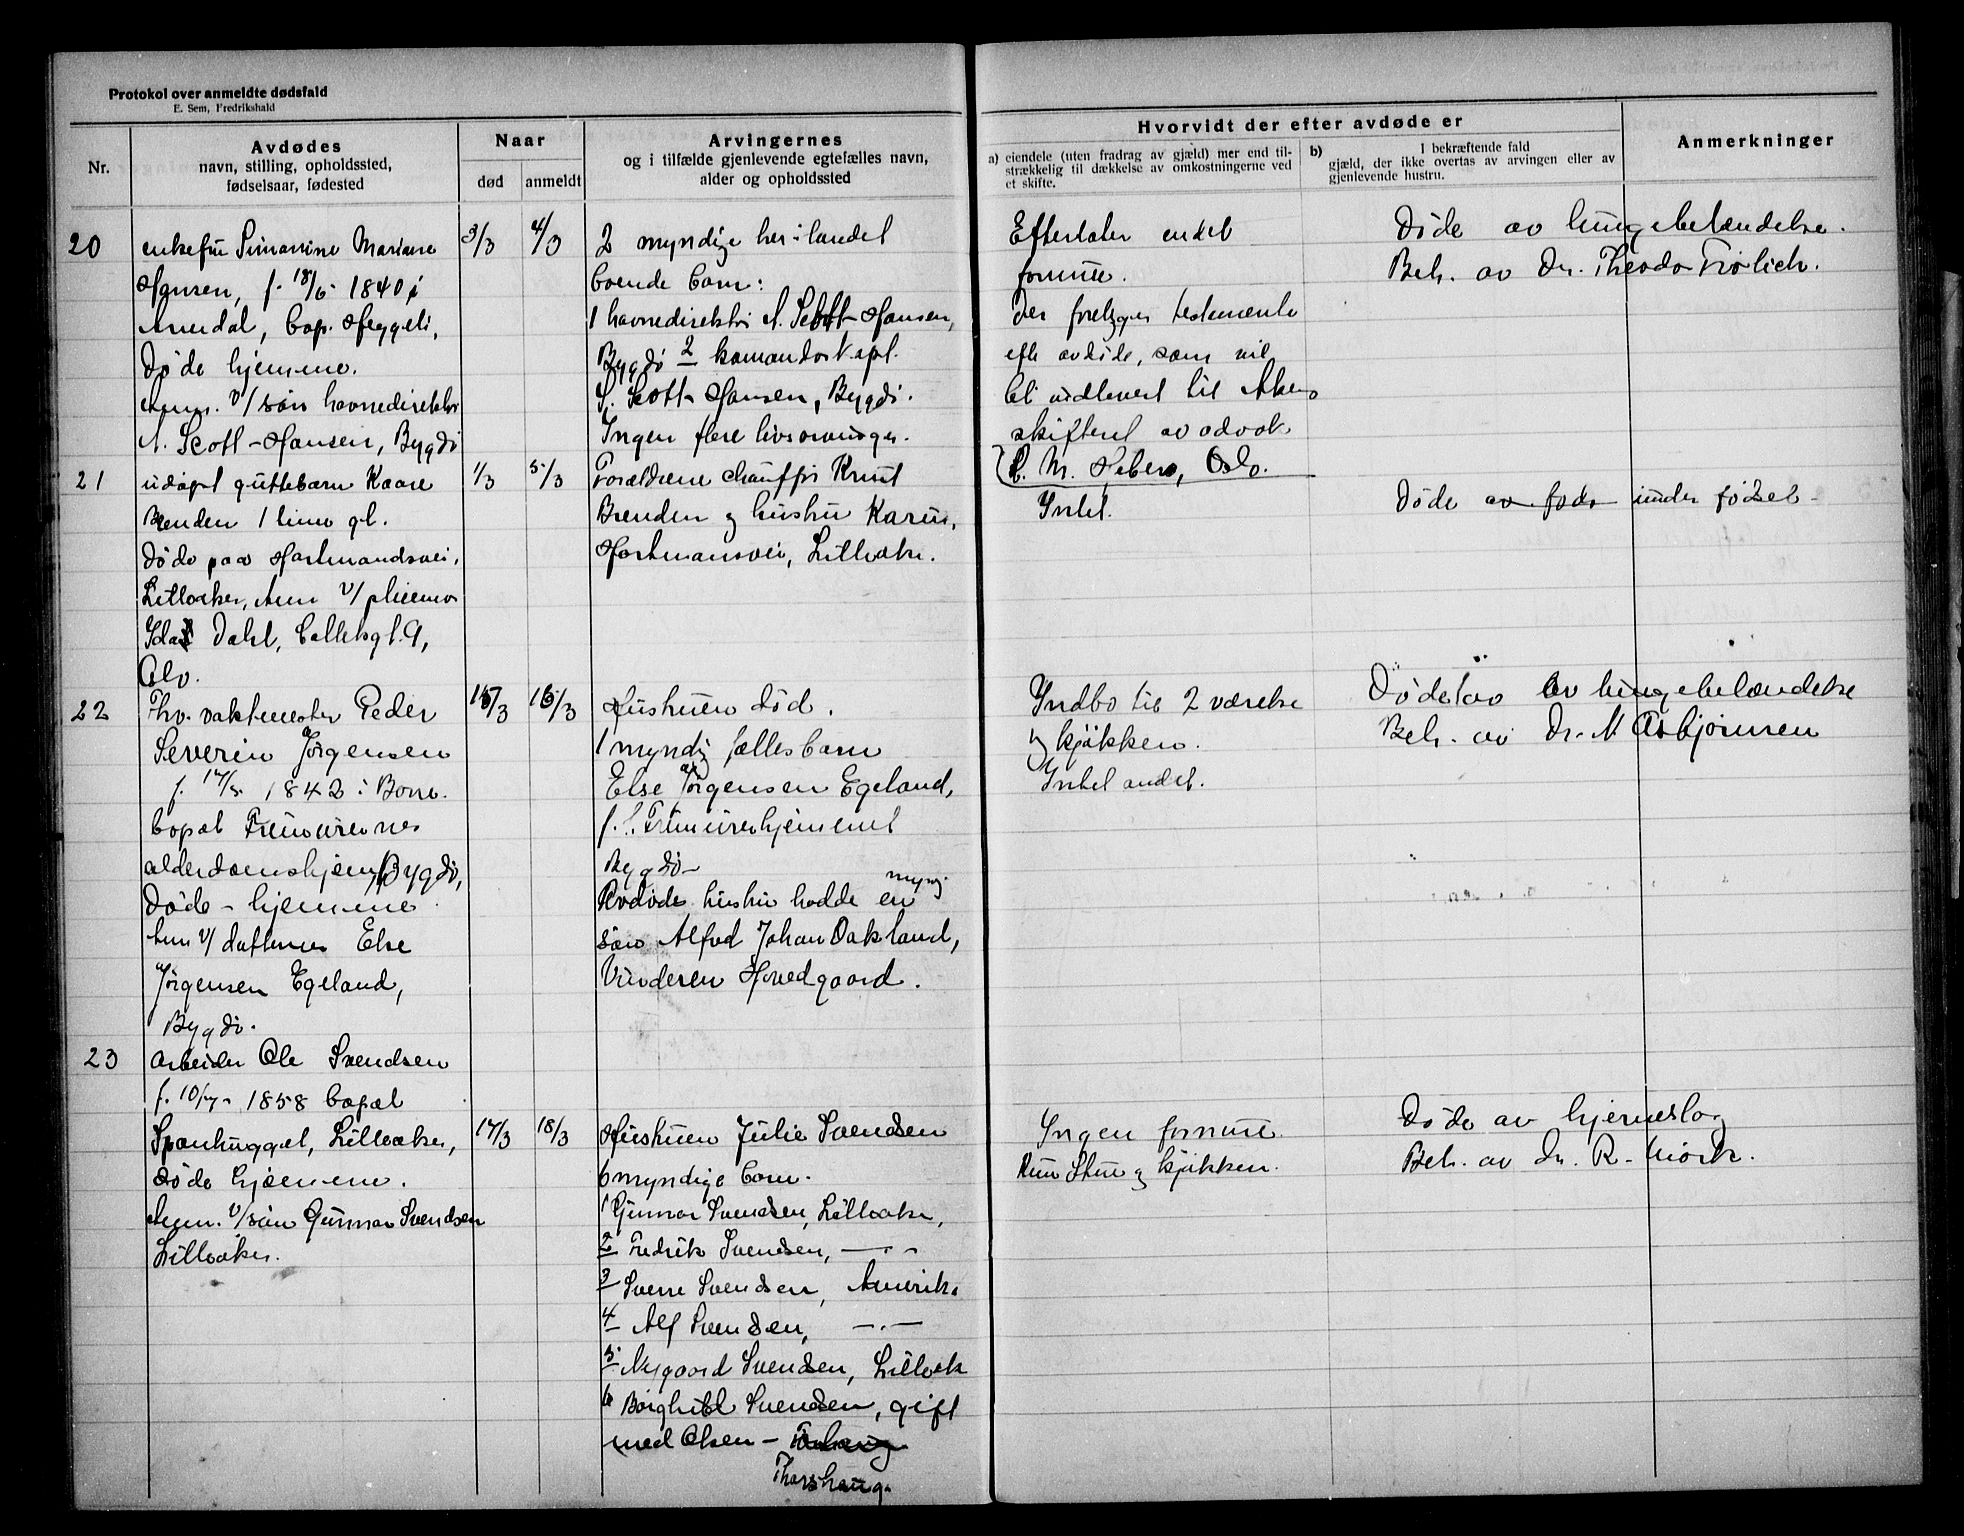 Protokol over anmeldte dødsfald
E. Sem, Fredrikshald
Nr.
Avdødes
navn, stilling, opholdssted,
fødselsaar, fødested
Naar
død
anmeldt
Arvingernes
og i tilfælde gjenlevende egtefælles navn,
alder og opholdssted
Hvorvidt der efter avdøde er
a) eiendele (uten fradrag av gjæld) mer end til-
strækkelig til dækkelse av omkostningerne ved
et skifte.
b) I bekræftende fald
gjæld, der ikke overtas av arvingen eller av
gjenlevende hustru.
Anmerkninger
20
enkefru Mariane
Hansen, f. 18/5 1840 i
Arendal, bop. Heggeli,
Døde hjemme.
Anm. v/ søn havnedirektør
A. Scott-Hansen, Bygdø
3/3
4/3
2 myndige her i landet
boende barn:
1 havnedirektør A. Scott-Hansen,
Bygdø 2 komandørkapt.
S. Scott-Hansen, Bygdø.
Ingen flere livsarvinger.
Efterlater endel
formue.
Der foreligger testamente
eft avdøde, som vil
bli utlevert til Akers
skifteret av advok
Oslo.
Døde av lungebetændelse.
Beh. av Dr. Theodor Frølich.
21
udøpt guttebarn Kaare
Brenden 1 time gl.
Døde paa Hartmandsvei,
Lilleaker, Anm v/
Ida Dahl, 9,
Oslo.
1/3
5/3
Forældrene chauffør Knut
Brenden og hustru Karen,
Hartmansvei, Lilleaker.
Intet.
Døde av føds under fødsel
22
Fhv. vaktmester Peder
Severin Jørgensen
f. 1842 i Borre.
bopæl Frimurernes
alderdomshjem, Bygdø,
Døde hjemme
Anm v/ datteren Else
Jørgensen Egeland,
Bygdø.
15/3
16/3
Hustruen død.
1 myndig fællesbarn
Else Jørgensen Egeland,
Frimurerhjemmet
Bygdø
Avdødes hustru hadde en mynd.
søn Alfred Johan Oakland,
Vinderen Hovedgaard.
Indbo til 2 værelse
og kjøkken.
Intet andet.
Døde av lungebetændelse
Beh. av Dr. N Asbjørnsen
23
Arbeider Ole Svendsen
f. 10/7 1858 bopæl
Spanhugget, Lilleaker,
døde hjemme.
Anm. v/ søn Gunnar Svendsen
Lilleaker.
17/3
18/3
Hustruen Julie Svendsen
6 myndige barn.
1 Gunnar Svendsen, Lilleaker,
2 Fredrik Svendsen, —"—
3 Sverre Svendsen, Amerika
4 Alf Svendsen, —"—
5 Nygaard Svendsen, Lilleak
6 Borghild Svendsen, gift
med Olsen –
Thorshaug.
Ingen formue.
Kun stue og kjøkken.
Døde av hjerneslag
Beh. av Dr. R. Mørk.